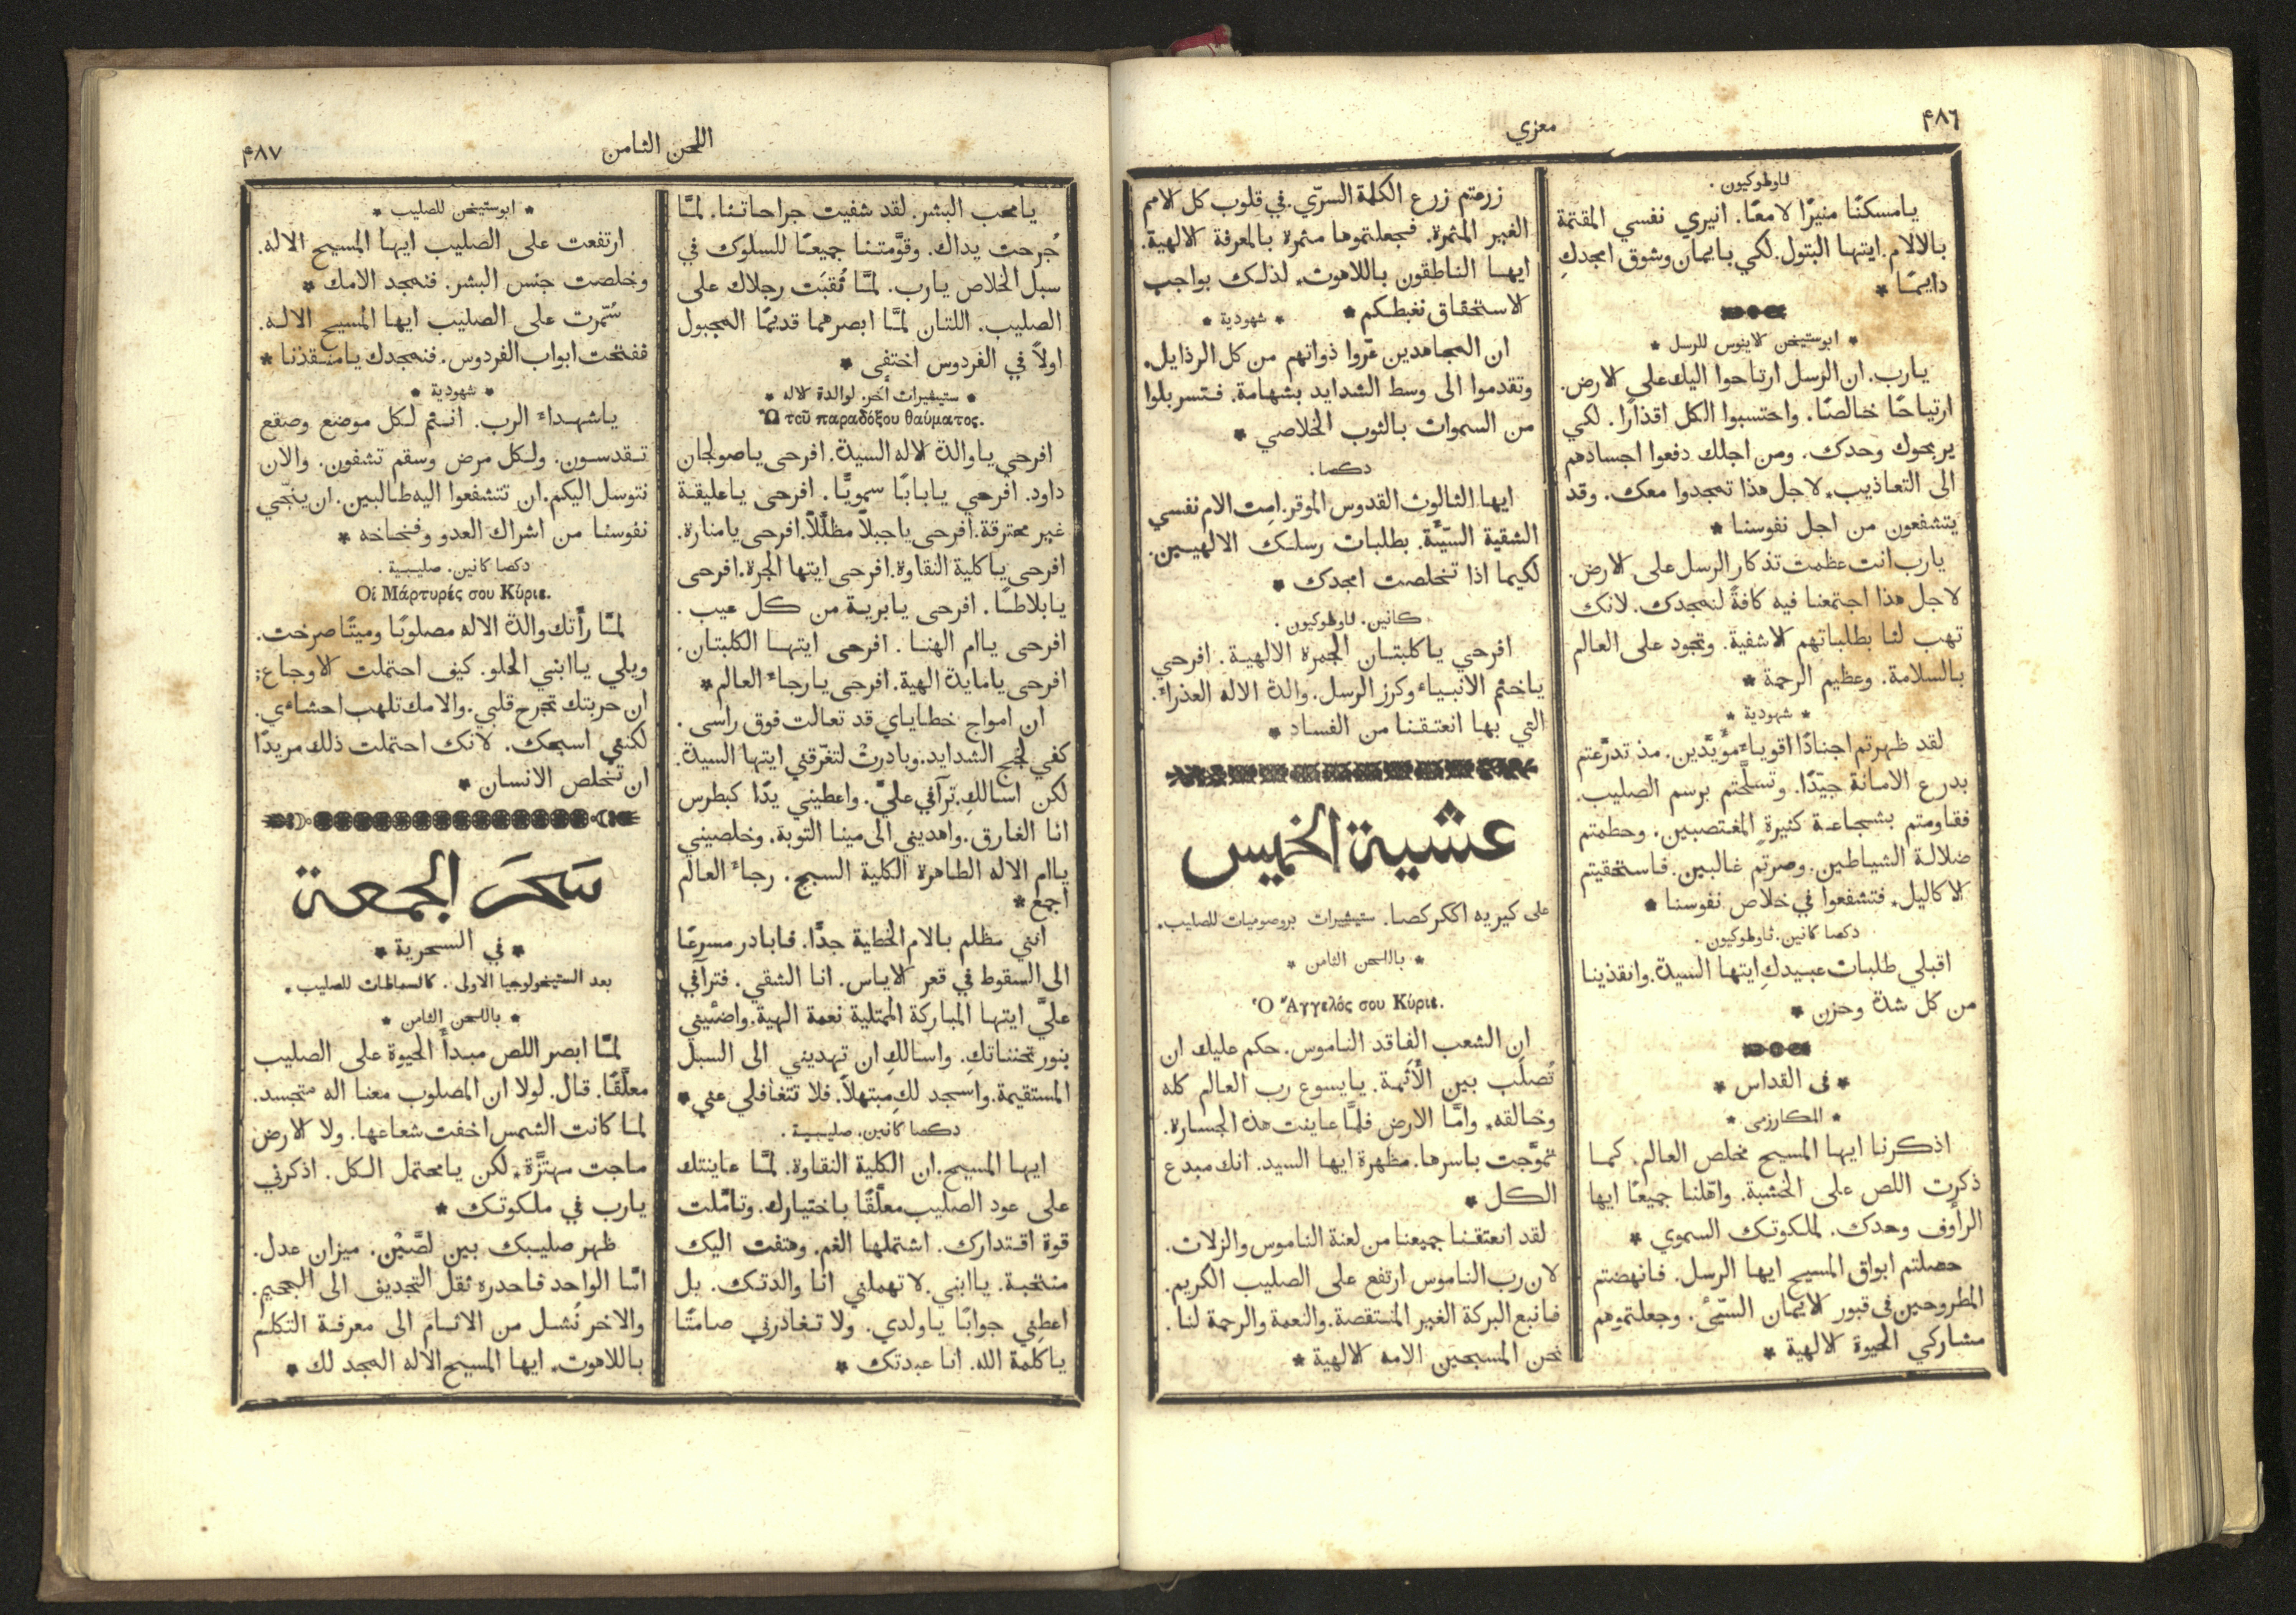 ۴۸٦
معزي
ثاوطوكيون .
يامسكنًا منيرًا لامعًا. انيري نفسي المقتمة
بالالام. ايتها البتول. لكي بايمان وشوق امجدكِ
دايمًا *
* ابوستيخن كاينوس للرسل *
يارب. ان الرسل ارتاحوا اليك على الارض.
ارتياحًا خالصًا. واحتسبوا الكل اقذارًا. لكي
يربحوك وحدك. ومن اجلك دفعوا اجسادهم
الى التعاذيب. لاجل هذا تمجدوا معك. وقد
يتشفعون من اجل نفوسنا *
يارب انت عظمت تذكار الرسل على الارض.
لاجل هذا اجتمعنا فيه كافةً لنمجدك. لانك
تهب لنا بطلباتهم الاشفية. وتجود على العالم
بالسلامة. وعظيم الرحمة *
* شهودية *
لقد ظهرتم اجنادًا اقوياء مؤيّدين. مذ تدرَّعتم
بدرع الامانة جيّدًا. وتسلَّحتم برسم الصليب.
فقاومتم بشجاعة كثيرة المغتصبين. وحطمتم
ضلالة الشياطين. وصرتم غالبين. فاستحقيتم
الاكاليل. فتشفعوا في خلاص نفوسنا *
دكصا كانين. ثاوطوكيون .
اقبلي طلبات عبيدكِ ايتها السيدة. وانقذينا
من كل شدة وحزن *
* في القداس *
* المكارزمي *
اذكرنا ايها المسيح مخلص العالم. كما
ذكرت اللص على الخشبة. واهّلنا جميعًا ايها
الرأوف وحدك. لملكوتك السموي *
حصلتم ابواق المسيح ايها الرسل. فانهضتم
المطروحين في قبور الايمان السّيئ. وجعلتموهم
مشاركي الحيوة الالهية *
زرعتم زرع الكلمة السرّي. في قلوب كل الامم
الغير المثمرة. فجعلتموها مثمرة بالمعرفة الالهية.
ايها الناطقون باللاهوت. لذلك بواجب
الاستحقاق نغبطكم * * شهودية *
ان المجاهدين عرّوا ذواتهم من كل الرذايل.
وتقدموا الى وسط الشدايد بشهامة. فتسربلوا
من السموات بالثوب الخلاصي *
دكصا .
ايها الثالوث القدوس الموقر. امِت الام نفسي
الشقية السّيّئة. بطلبات رسلك الالهيين.
لكيما اذا تخلصت امجدك *
كانين. ثاوطوكيون .
افرحي ياكلبتان الجمرة الالهية. افرحي
ياختم الانبياء وكرز الرسل. والدة الاله العذراء.
التي بها انعتقنا من الفساد *
عشية الخميس
على كيريه اككركصا. ستيشيرات بروصوميات للصليب.
* باللحن الثامن *
Ὁ Ἄγγελός σου Κύριε.
ان الشعب الفاقد الناموس. حكم عليك ان
تُصلَب بين الأَثمة. يايسوع رب العالم كله
وخالقه. وامّا الارض فلمَّا عاينت هذه الجسارة.
تموّجت باسرها. مظهرة ايها السيد. انك مبدع
الكل *
لقد انعتقنا جميعنا من لعنة الناموس والزلات.
لان رب الناموس ارتفع على الصليب الكريم.
فانبع البركة الغير المنتقصة. والنعمة والرحمة لنا.
نحن المسبحين الامه الالهية *
اللحن الثامن
۴۸۷
يامحب البشر. لقد شفيت جراحاتنا. لمَّا
جُرحت يداك. وقوَّمتنا جميعًا للسلوك في
سبل الخلاص يارب. لمَّا ثُقبَت رجلاك على
الصليب. اللتان لمَّا ابصرهما قديمًا المجبول
اولاً في الفردوس اختفى *
* ستيشيرات أُخر. لوالدة الاله *
Ὢ τοῦ παραδόξου θαύματος.
افرحي ياوالدة الاله السيدة. افرحي ياصولجان
داود. افرحي يابابًا سمويًّا. افرحي ياعليقة
غير محترقة. افرحي ياجبلاً مظلَّلاً. افرحي يامنارة.
افرحي ياكلية النقاوة. افرحي ايتها الجرة. افرحي
يابلاطًا. افرحي يابرية من كل عيب.
افرحي ياام الهنا. افرحي ايتها الكلبتان.
افرحي يامايدة الهية. افرحي يارجاء العالم *
ان امواج خطاياي قد تعالت فوق راسي.
كفي لجج الشدايد. وبادرتْ لتغرّقني ايتها السيدة.
لكن اسالكِ. ترآفي عليَّ. واعطيني يدًا كبطرس
انا الغارق. واهديني الى مينا التوبة. وخلصيني
ياام الاله الطاهرة الكلية السبح. رجاء العالم
اجمع *
انني مظلم بالام الخطية جدًّا. فابادر مسرعًا
الى السقوط في قعر الاياس. انا الشقي. فترآفي
عليَّ ايتها المباركة الممتلية نعمة الهية. واضئيني
بنور تحنناتكِ. واسالكِ ان تهديني الى السبل
المستقيمة. واسجد لكِ مبتهلاً. فلا تتغافلي عني *
دكصا كانين. صليبية .
ايها المسيح. ان الكلية النقاوة. لمَّا عاينتك
على عود الصليب معلَّقًا باختيارك. وتامّلت
قوة اقتدارك. اشتملها الغم. وهتفت اليك
منتحبة. ياابني. لا تهملني انا والدتك. بل
اعطِني جوابًا ياولدي. ولا تغادرني صامتًا
ياكلمة الله. انا عبدتك *
* ابوستيخن للصليب *
ارتفعت على الصليب ايها المسيح الاله.
وخلصت جنس البشر. فنمجد الامك *
سُمّرت على الصليب ايها المسيح الاله.
ففتحت ابواب الفردوس. فنمجدك يامنقذنا *
* شهودية *
ياشهداء الرب. انتم لكل موضع وصقع
تقدسون. ولكل مرض وسقم تشفون. والان
نتوسل اليكم. ان تتشفعوا اليه طالبين. ان ينجّي
نفوسنا من اشراك العدو وفخاخه *
دكصا كانين. صليبية .
Οἱ Μάρτυρές σου Κύριε.
لمَّا رأَتك والدة الاله مصلوبًا وميتًا صرخت.
ويلي ياابني الحلو. كيف احتملت الاوجاع:
ان حربتك تجرح قلبي. والامك تلهب احشاءي.
لكنني اسبحك. لانك احتملت ذلك مريدًا
ان تخلص الانسان *
سَحَرَ الجمعة
* في السحرية *
بعد الستيخولوجيا الاولى. كالسماطات للصليب.
* باللحن الثامن *
لمَّا ابصر اللص مبدأَ الحيوة على الصليب
معلَّقًا. قال. لولا ان المصلوب معنا اله متجسد.
لما كانت الشمس اخفت شعاعها. ولا الارض
ماجت مهتزَّة. لكن يامحتمل الكل. اذكرني
يارب في ملكوتك *
ظهر صليبك بين لصَّيْن. ميزان عدل.
امّا الواحد فاحدره ثقل التجديف الى الجحيم.
والاخر نُشل من الاثام الى معرفة التكلم
باللاهوت. ايها المسيح الاله المجد لك *